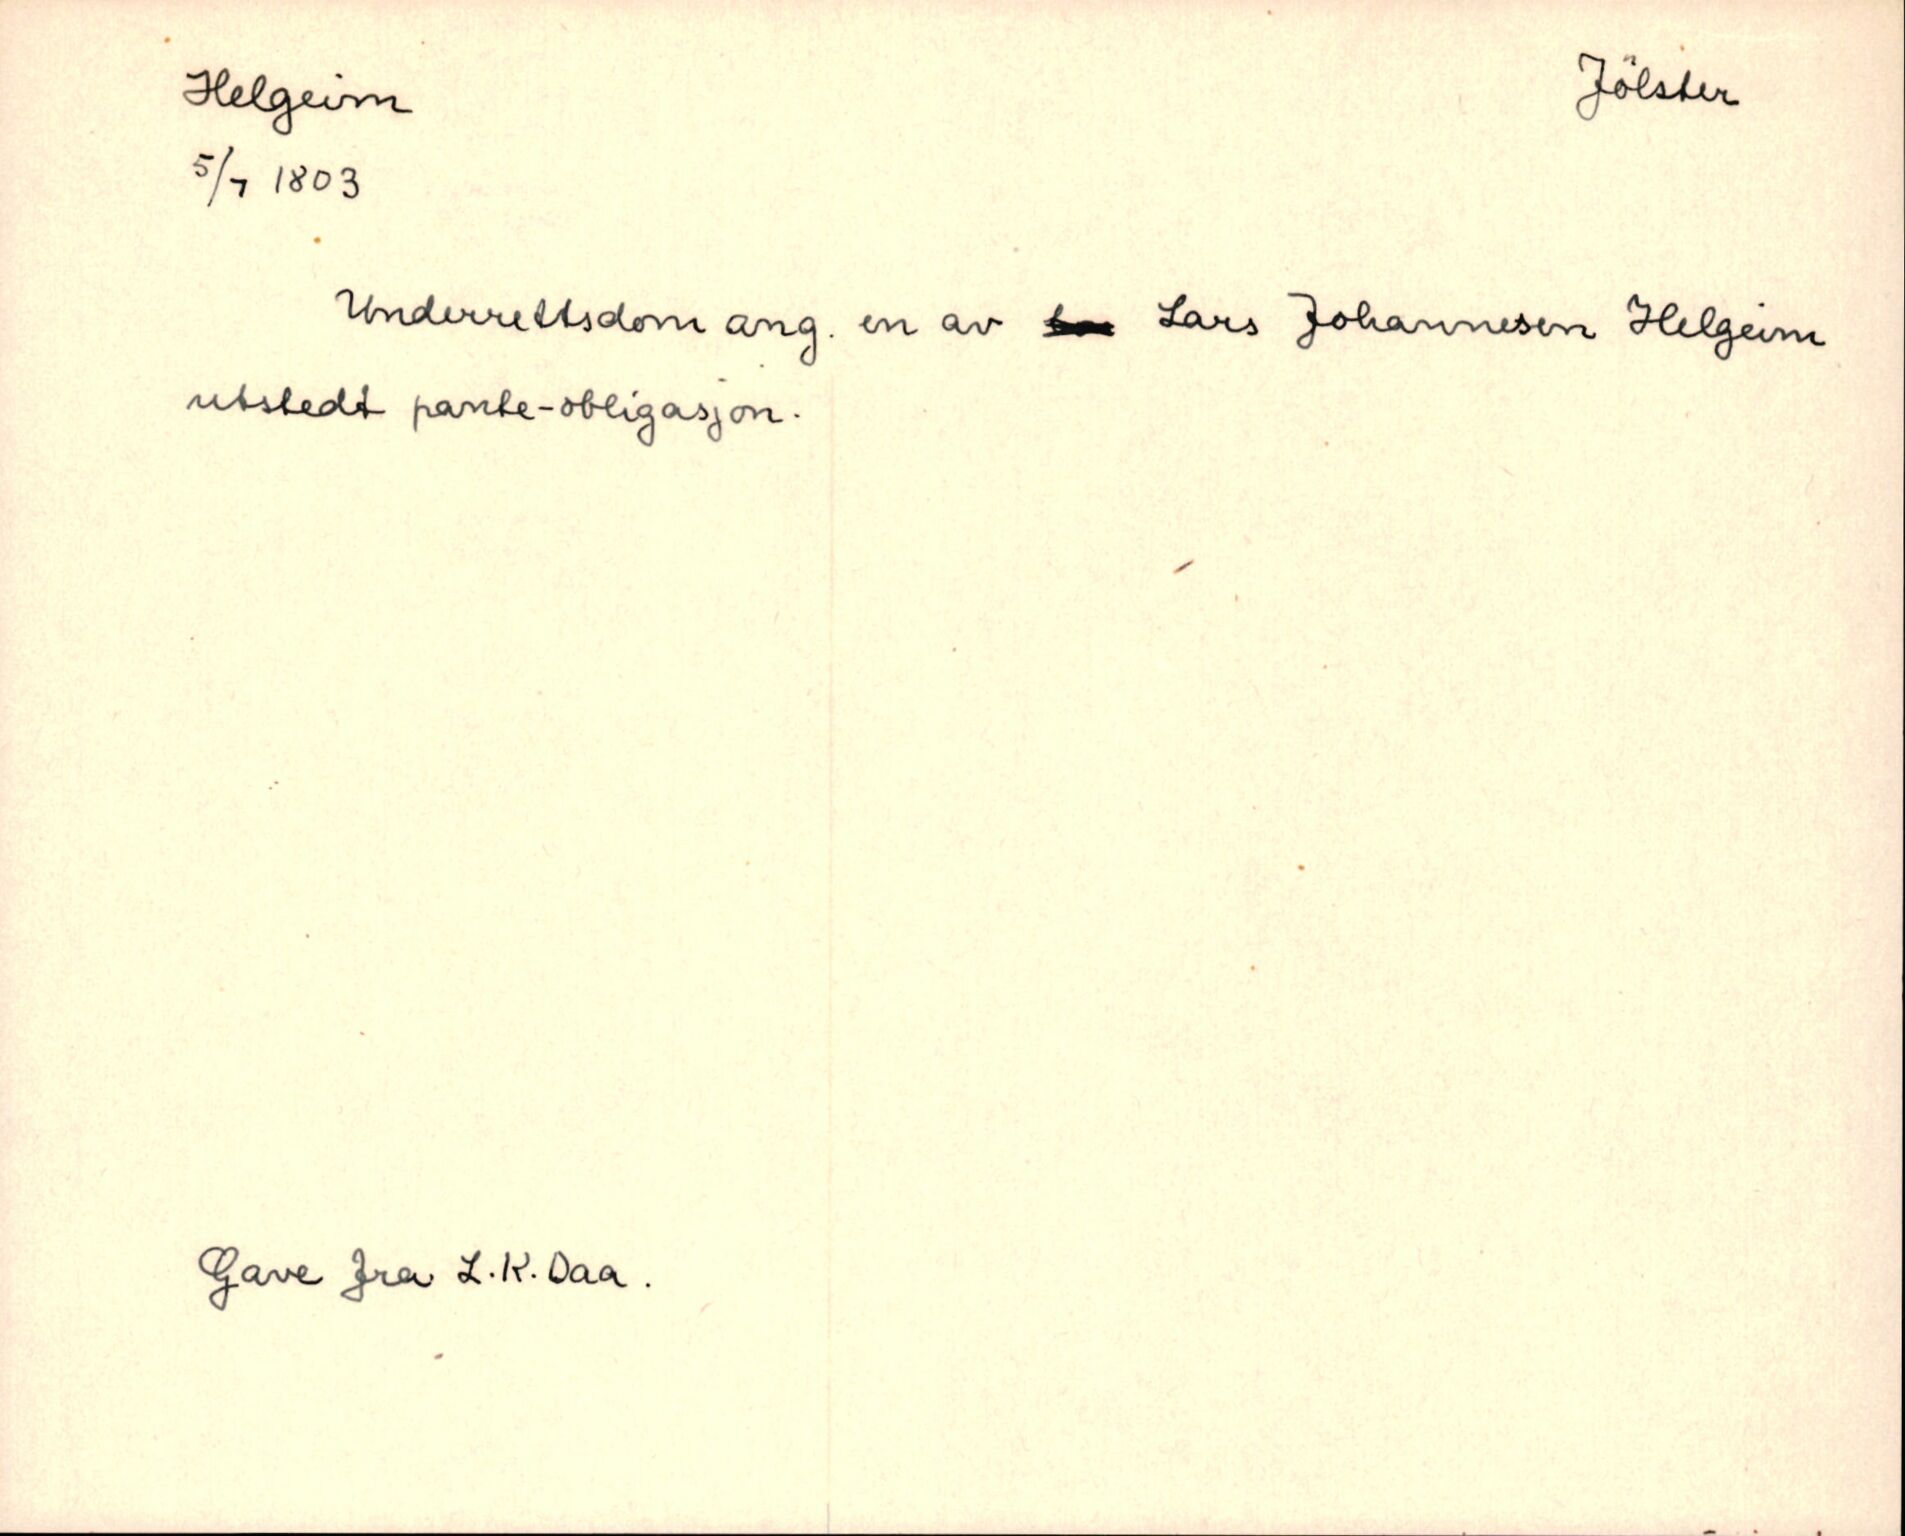 Helgeim Jölster
5/7 1803
Underrettsdom ang. en av Lars Johannesen Helgeim
utstedt pante-obligasjon.
Gave fra L.K. Daa.